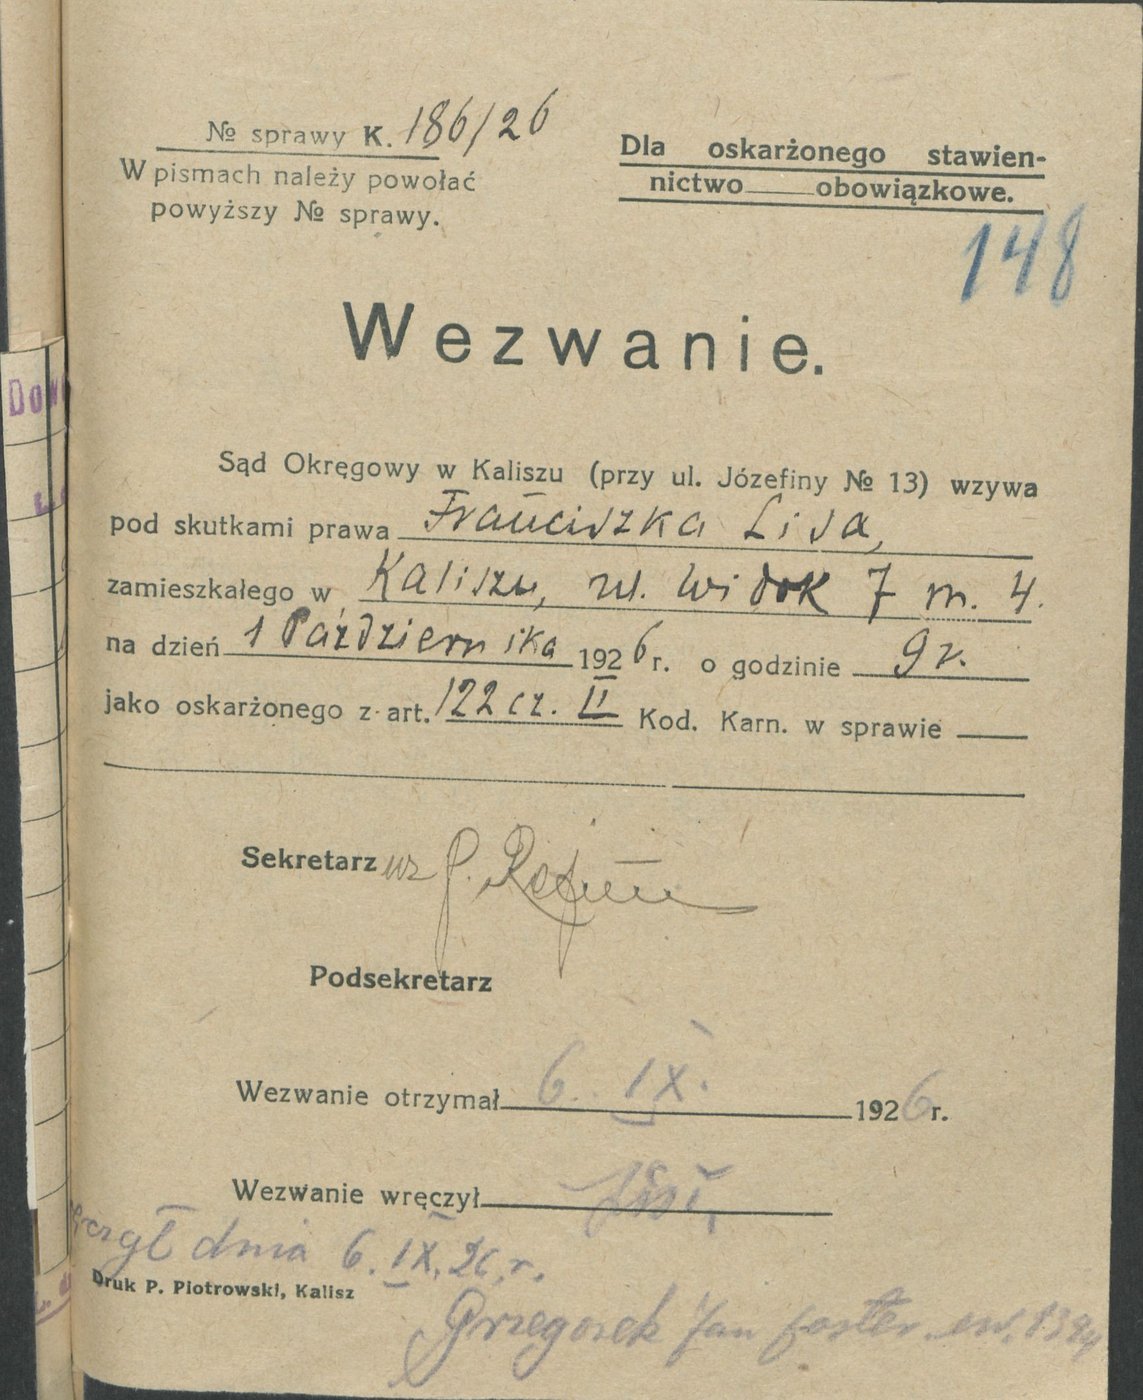 № sprawy K. 186/26
W pismach należy powołać
powyższy № sprawy.
Dla oskarżonego stawien-
nictwo obowiązkowe.
148
Wezwanie.
Sąd Okręgowy w Kaliszu (przy ul. Józefiny № 13) wzywa
pod skutkami prawa Franciszka Lisa,
zamieszkałego w Kaliszu, ul. Widok 7 m. 4.
na dzień 1 Października 1926 r. o godzinie 9 r.
jako oskarżonego z art. 122 cz. II Kod. Karn. w sprawie
Sekretarz wz
Podsekretarz
Wezwanie otrzymał 6. IX. 1926 r.
Wezwanie wręczył
dnia 6. IX. 26. r.
Druk P. Piotrowski, Kalisz
Grzegorek Jan